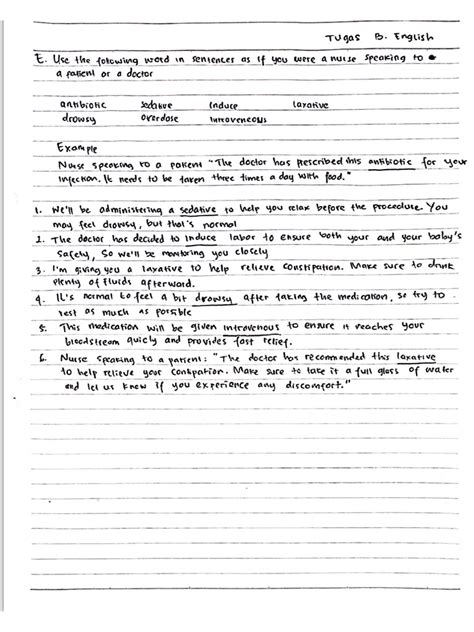 Tugas B. English
E. Use the following word in sentences as if you were a nurse speaking to
a patient or a doctor
antibiotic sedative Induce laxative
drowsy overdose Introveneous
Example
Nurse speaking to a patient "The doctor has prescribed this antibiotic for your
infection. It needs to be taken three times a day with food."
1. We'll be administering a sedative to help you relax before the procedure. You
may feel drowsy, but that's normal
2. The doctor has decided to induce labor to ensure both your and your baby's
safety, So we'll be monitoring you closely
3. I'm giving you a laxative to help relieve constipation. Make sure to drink
plenty of fluids afterward.
4. It's normal to feel a bit drowsy after taking the medication, so try to
rest as much as possible
5. This medication will be given introvenous to ensure it reaches your
bloodstream quicly and provides fast relief.
6. Nurse speaking to a patient: "The doctor has recommended this laxative
to help relieve your contipation. Make sure to take it a full glass of water
and let us know if you experience any discomfort."